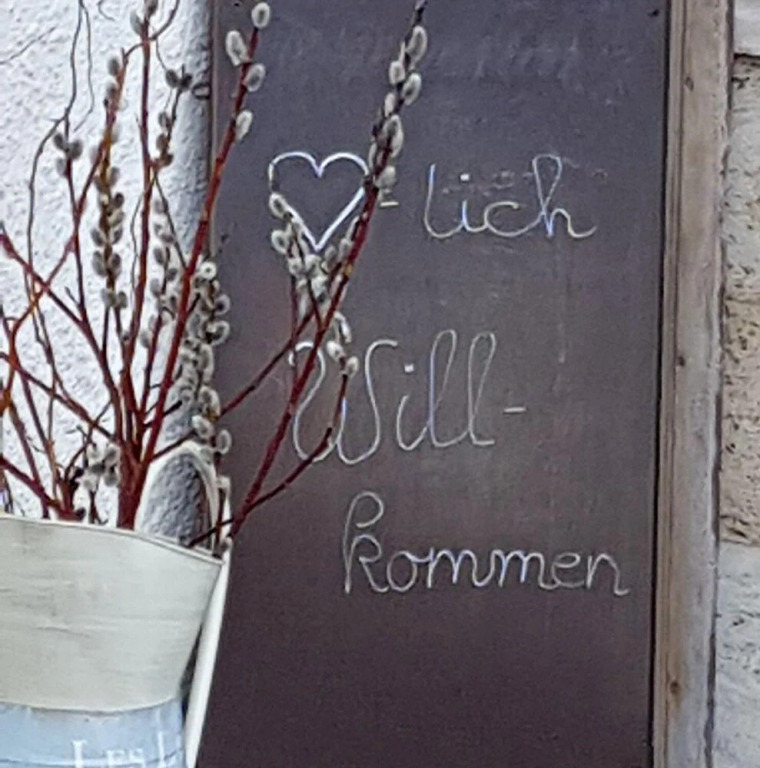 ♡-lich
Will-
kommen